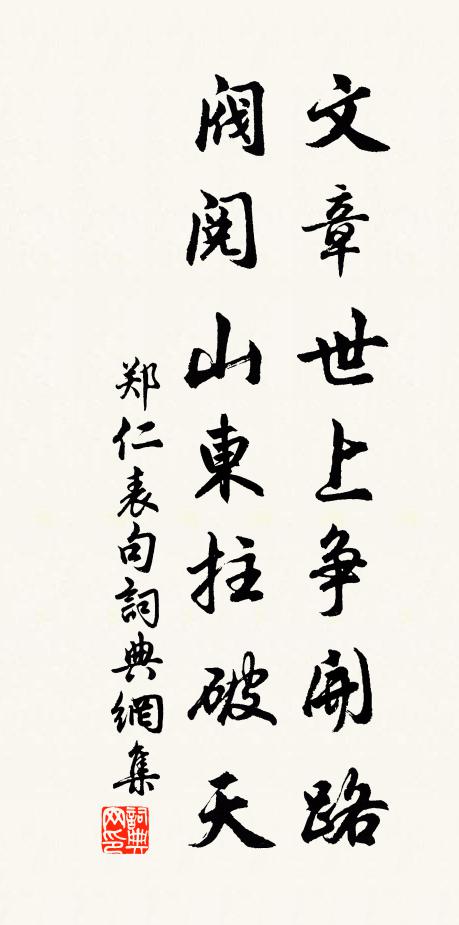 文章世上争開路
閥閱山東拄破天
郑仁表句詞典網集
詞典网印